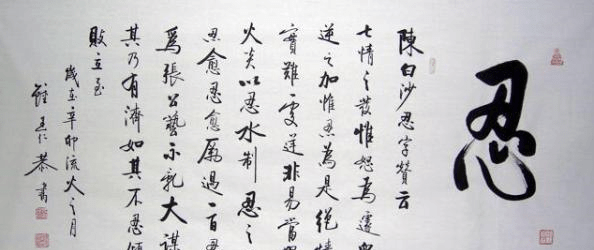 忍
陳白沙忍字贊云
七情之發惟怒為遽眾
逆之加惟忍為是絕情
實難處逆非易當怒
火炎以忍水制忍之
忍愈忍愈厲過一百忍
爲張公藝不亂大謀
其乃有濟如其不忍傾
敗立至
歲在辛卯流火之月
仁恭書